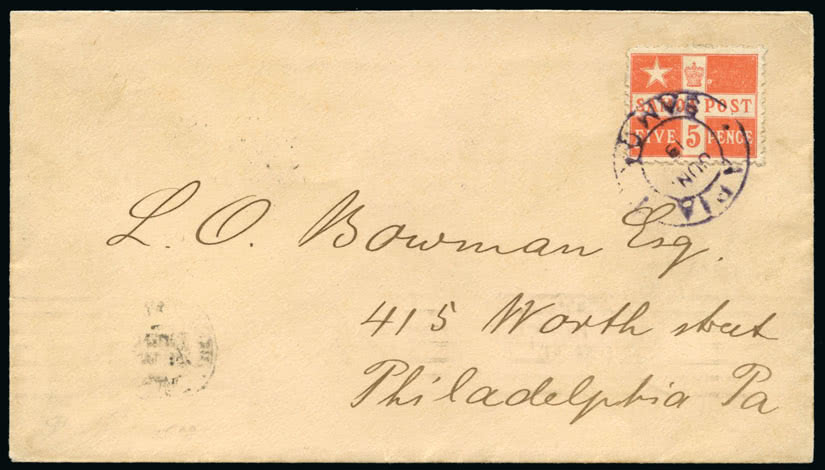 SAMOA POST
FIVE 5 PENCE
APIA SAMOA
JUN.
L. O. Bowman Esq.
415 Worth street
Philadelphia Pa